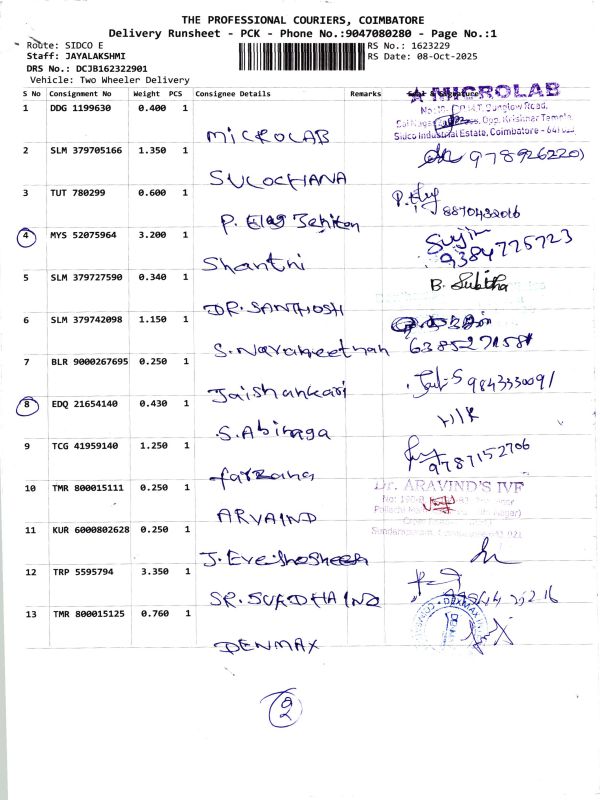 THE PROFESSIONAL COURIERS, COIMBATORE
Delivery Runsheet - PCK - Phone No.:9047080280 - Page No.:1
Route: SIDCO E
RS No.: 1623229
Staff: JAYALAKSHMI
RS Date: 08-Oct-2025
DRS No.: DCJB162322901
Vehicle: Two Wheeler Delivery
S No Consignment No Weight PCS Consignee Details Remarks & Signature
MICROLAB
1 DDG 1199630 0.400 1
Road,
Opp. Krishnar Temple,
Sidco Industrial Estate, Coimbatore -
MICROLAB
2 SLM 379705166 1.350 1
SULOCHANA
3 TUT 780299 0.600 1
8870432016
P.
4 MYS 52075964 3.200 1
9384775723
Shanthi
5 SLM 379727590 0.340 1
B. Subitha
DR. SANTHOSH
6 SLM 379742098 1.150 1
S. Navaneethan
7 BLR 9000267695 0.250 1
Jaishankari
8 EDQ 21654140 0.430 1
S. Abinaga
9 TCG 41959140 1.250 1
9787152706
farzana
10 TMR 800015111 0.250 1
Dr. ARAVIND'S IVF
ARVAIND
11 KUR 6000802628 0.250 1
J.
12 TRP 5595794 3.350 1
SR.
13 TMR 800015125 0.760 1
DENMAX
9
2